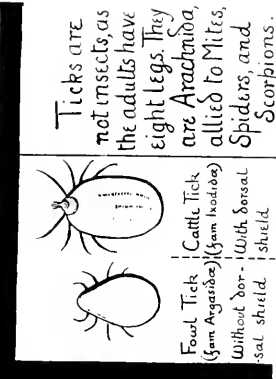 Ticks are
not insects, as
the adults have
eight legs. They
are Arachnida,
allied to Mites,
Spiders, and
Scorpions.
Cattle Tick
(fam Ixodidæ)
With dorsal
shield
Fowl Tick
(fam Argasidæ)
Without dor-
sal shield